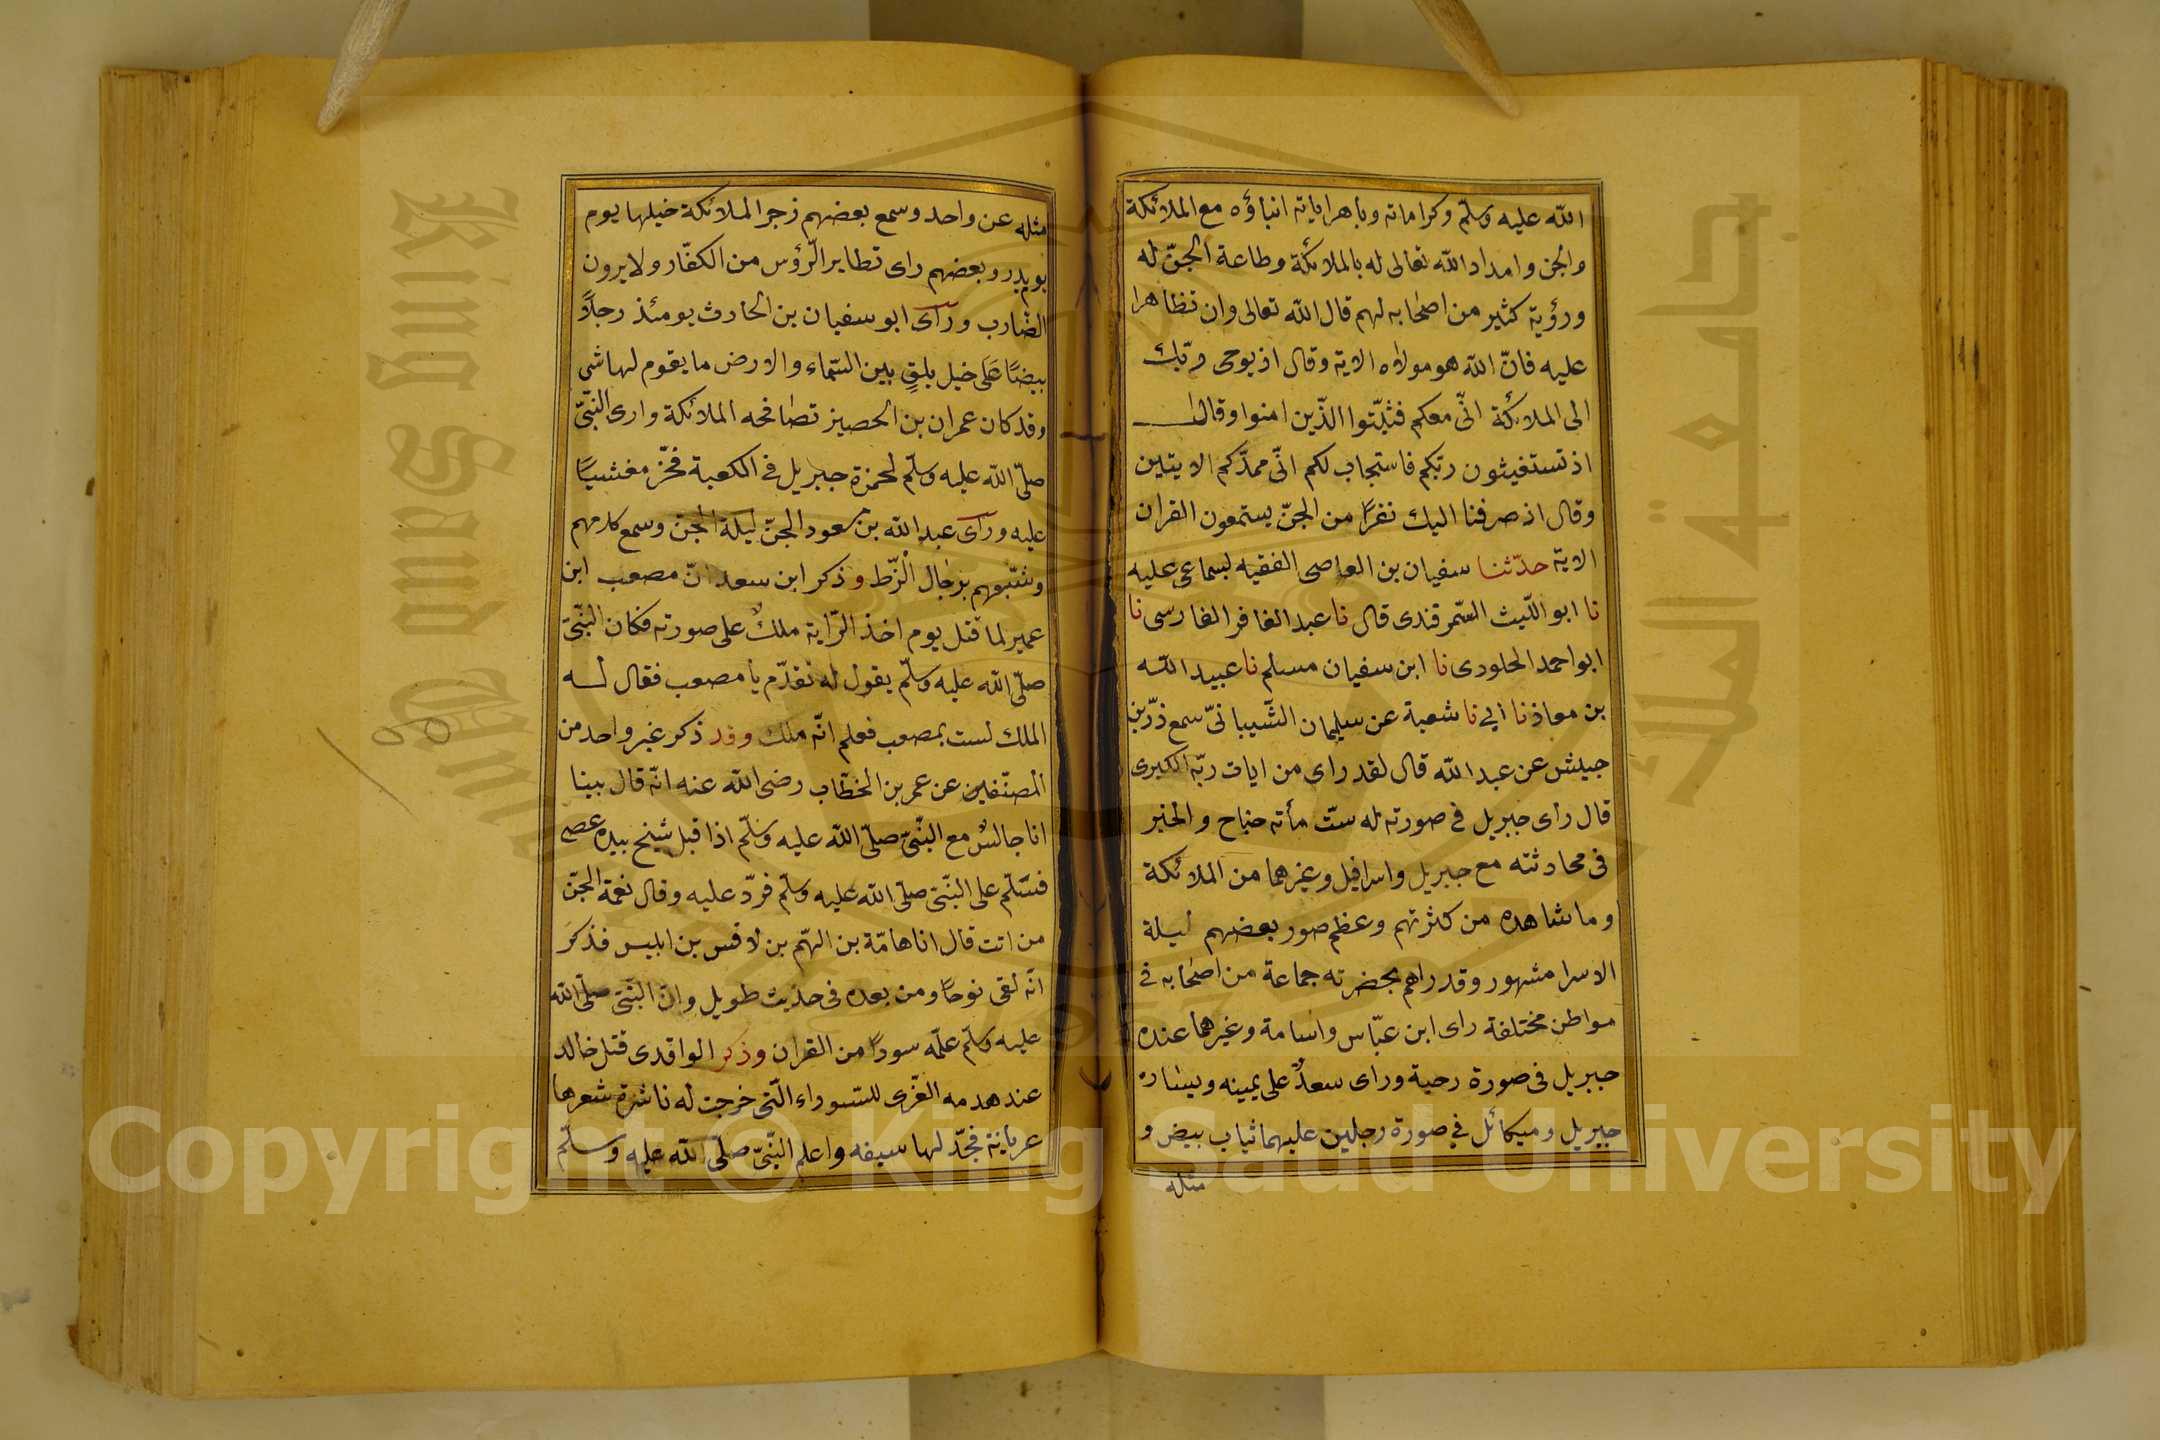 الله عليه وسلّم وكراماته وباهر اياته انباؤه مع الملائكة
والجن وامداد الله تعالى له بالملائكة وطاعة الجنّ له
ورؤية كثير من اصحابه لهم قال الله تعالى وان تظاهرا
عليه فانّ الله هو مولاه الاية وقال اذ يوحى ربّك
الى الملائكة انّى معكم فثبّتوا الّذين امنوا وقال
اذ تستغيثون ربّكم فاستجاب لكم انّى ممدّكم الايتين
وقال اذ صرفنا اليك نفرًا من الجنّ يستمعون القران
الاية حدّثنا سفيان بن العاصى الفقيه بسماعى عليه
نا ابو اللّيث السّمرقندى قال نا عبد الغافر الفارسى نا
ابو احمد الجلودى نا ابن سفيان مسلم نا عبيد الله
بن معاذ نا ابي نا شعبة عن سليمان الشّيبانىّ سمع زرّ بن
حبيش عن عبد الله قال لقد راى من ايات ربّه الكبرى
قال راى جبريل فى صورته له ستّ مأته جناح والخبر
فى محادثته مع جبريل واسرافيل وغيرهما من الملائكة
وما شاهده من كثرتهم وعظم صور بعضهم ليلة
الاسرا مشهور وقد راهم بحضرته جماعة من اصحابه فى
مواطن مختلفة راى ابن عبّاس واسامة وغيرهما عنده
جبريل فى صورة دحية وراى سعدٌ على يمينه ويساره
جبريل وميكائل في صورة رجلين عليهما ثياب بيض و
مثله
مثله عن واحد وسمع بعضهم زجر الملائكة خيلها يوم
يوم بدر وبعضهم راى تطاير الرّؤس من الكفّار ولا يرون
الضّارب وراى ابو سفيان بن الحارث يومئذ رجالاً
بيضًا على خيل بلقٍ بين السّماء والارض ما يقوم لها شى
وقد كان عمران بن الحصين تصافحه الملائكة وارى النّبىّ
صلّى الله عليه وسلّم لحمزة جبريل فى الكعبة فخرّ مغشيًا
عليه وراى عبد الله بن مسعود الجنّ ليلة الجنّ وسمع كلامهم
وشبّههم برجال الزّط وذكر ابن سعد انّ مصعب ابن
عمير لما قتل يوم اخذ الرّاية ملكٌ على صورته فكان النّبىّ
صلّى الله عليه وسلّم يقول له تقدّم يا مصعب فقال له
الملك لست بمصعب فعلم انّه ملك وقد ذكر غير واحد من
المصنّفين عن عمر بن الخطّاب رضى الله عنه انّه قال بينا
انا جالسٌ مع النّبىّ صلّى الله عليه وسلّم اذ اقبل شيخ بيده عصى
فسّلّم على النّبىّ صلّى الله عليه وسلّم فردّ عليه وقال نغمة الجنّ
من انت قال انا هامّة بن الهيّم بن لاقس بن ابليس فذكر
انّه لقى نوحًا ومن بعده فى حديث طويل وانّ النّبىّ صلّى الله
عليه وسلّم علّمه سورًا من القران وذكر الواقدى قتل خالد
عند هدمه العزّى للسّوداء الّتى خرجت له ناشرة شعرها
عريانة فجدّلها سيفه واعلم النّبىّ صلّى الله عليه وسلّم
جامعة الملك سعود
King Saud University
Copyright © King Saud University